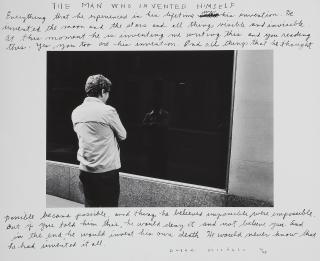 THE MAN WHO INVENTED HIMSELF
Everything that he experienced in his lifetime was his invention. He
invested the moon and the stars and all things visible and invisible.
At this moment he is inventing me writing this and you reading
this. Yes, you too are his invention. And all things that he thought
possible became possible, and things he believed impossible were impossible.
But if you told him this, he would deny it and not believe you. And
in the end he would invent his own death. He would never know that
he had invented it all.